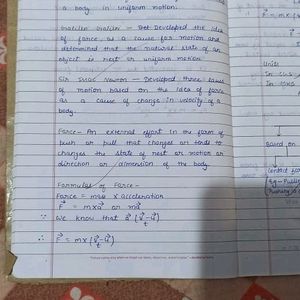 a body in uniform motion.
Galileo Galilei — Developed the idea
of force as a cause for motion and
determined that the natural state of an
object is rest or uniform motion.
Sir Isaac Newton — Developed three laws
of motion based on the idea of force
as a cause of change in velocity of a
body.
Force — An external effort in the form of
push or pull that changes or tends to
changes the state of rest or motion or
direction or dimension of the body.
Formulae of Force —
Force = mass x acceleration
F = m x a or ma
We know that a (v-u)
t
∴ F = m x (v-u)
t
F = m x
Units
In
In
Based on
Contact for
Eg - Pulling
Pushing